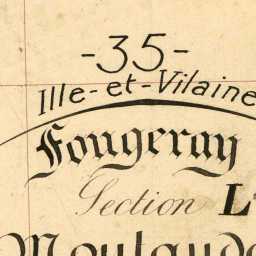 -35-
Ille-et-Vilaine
Fougeray
Section L